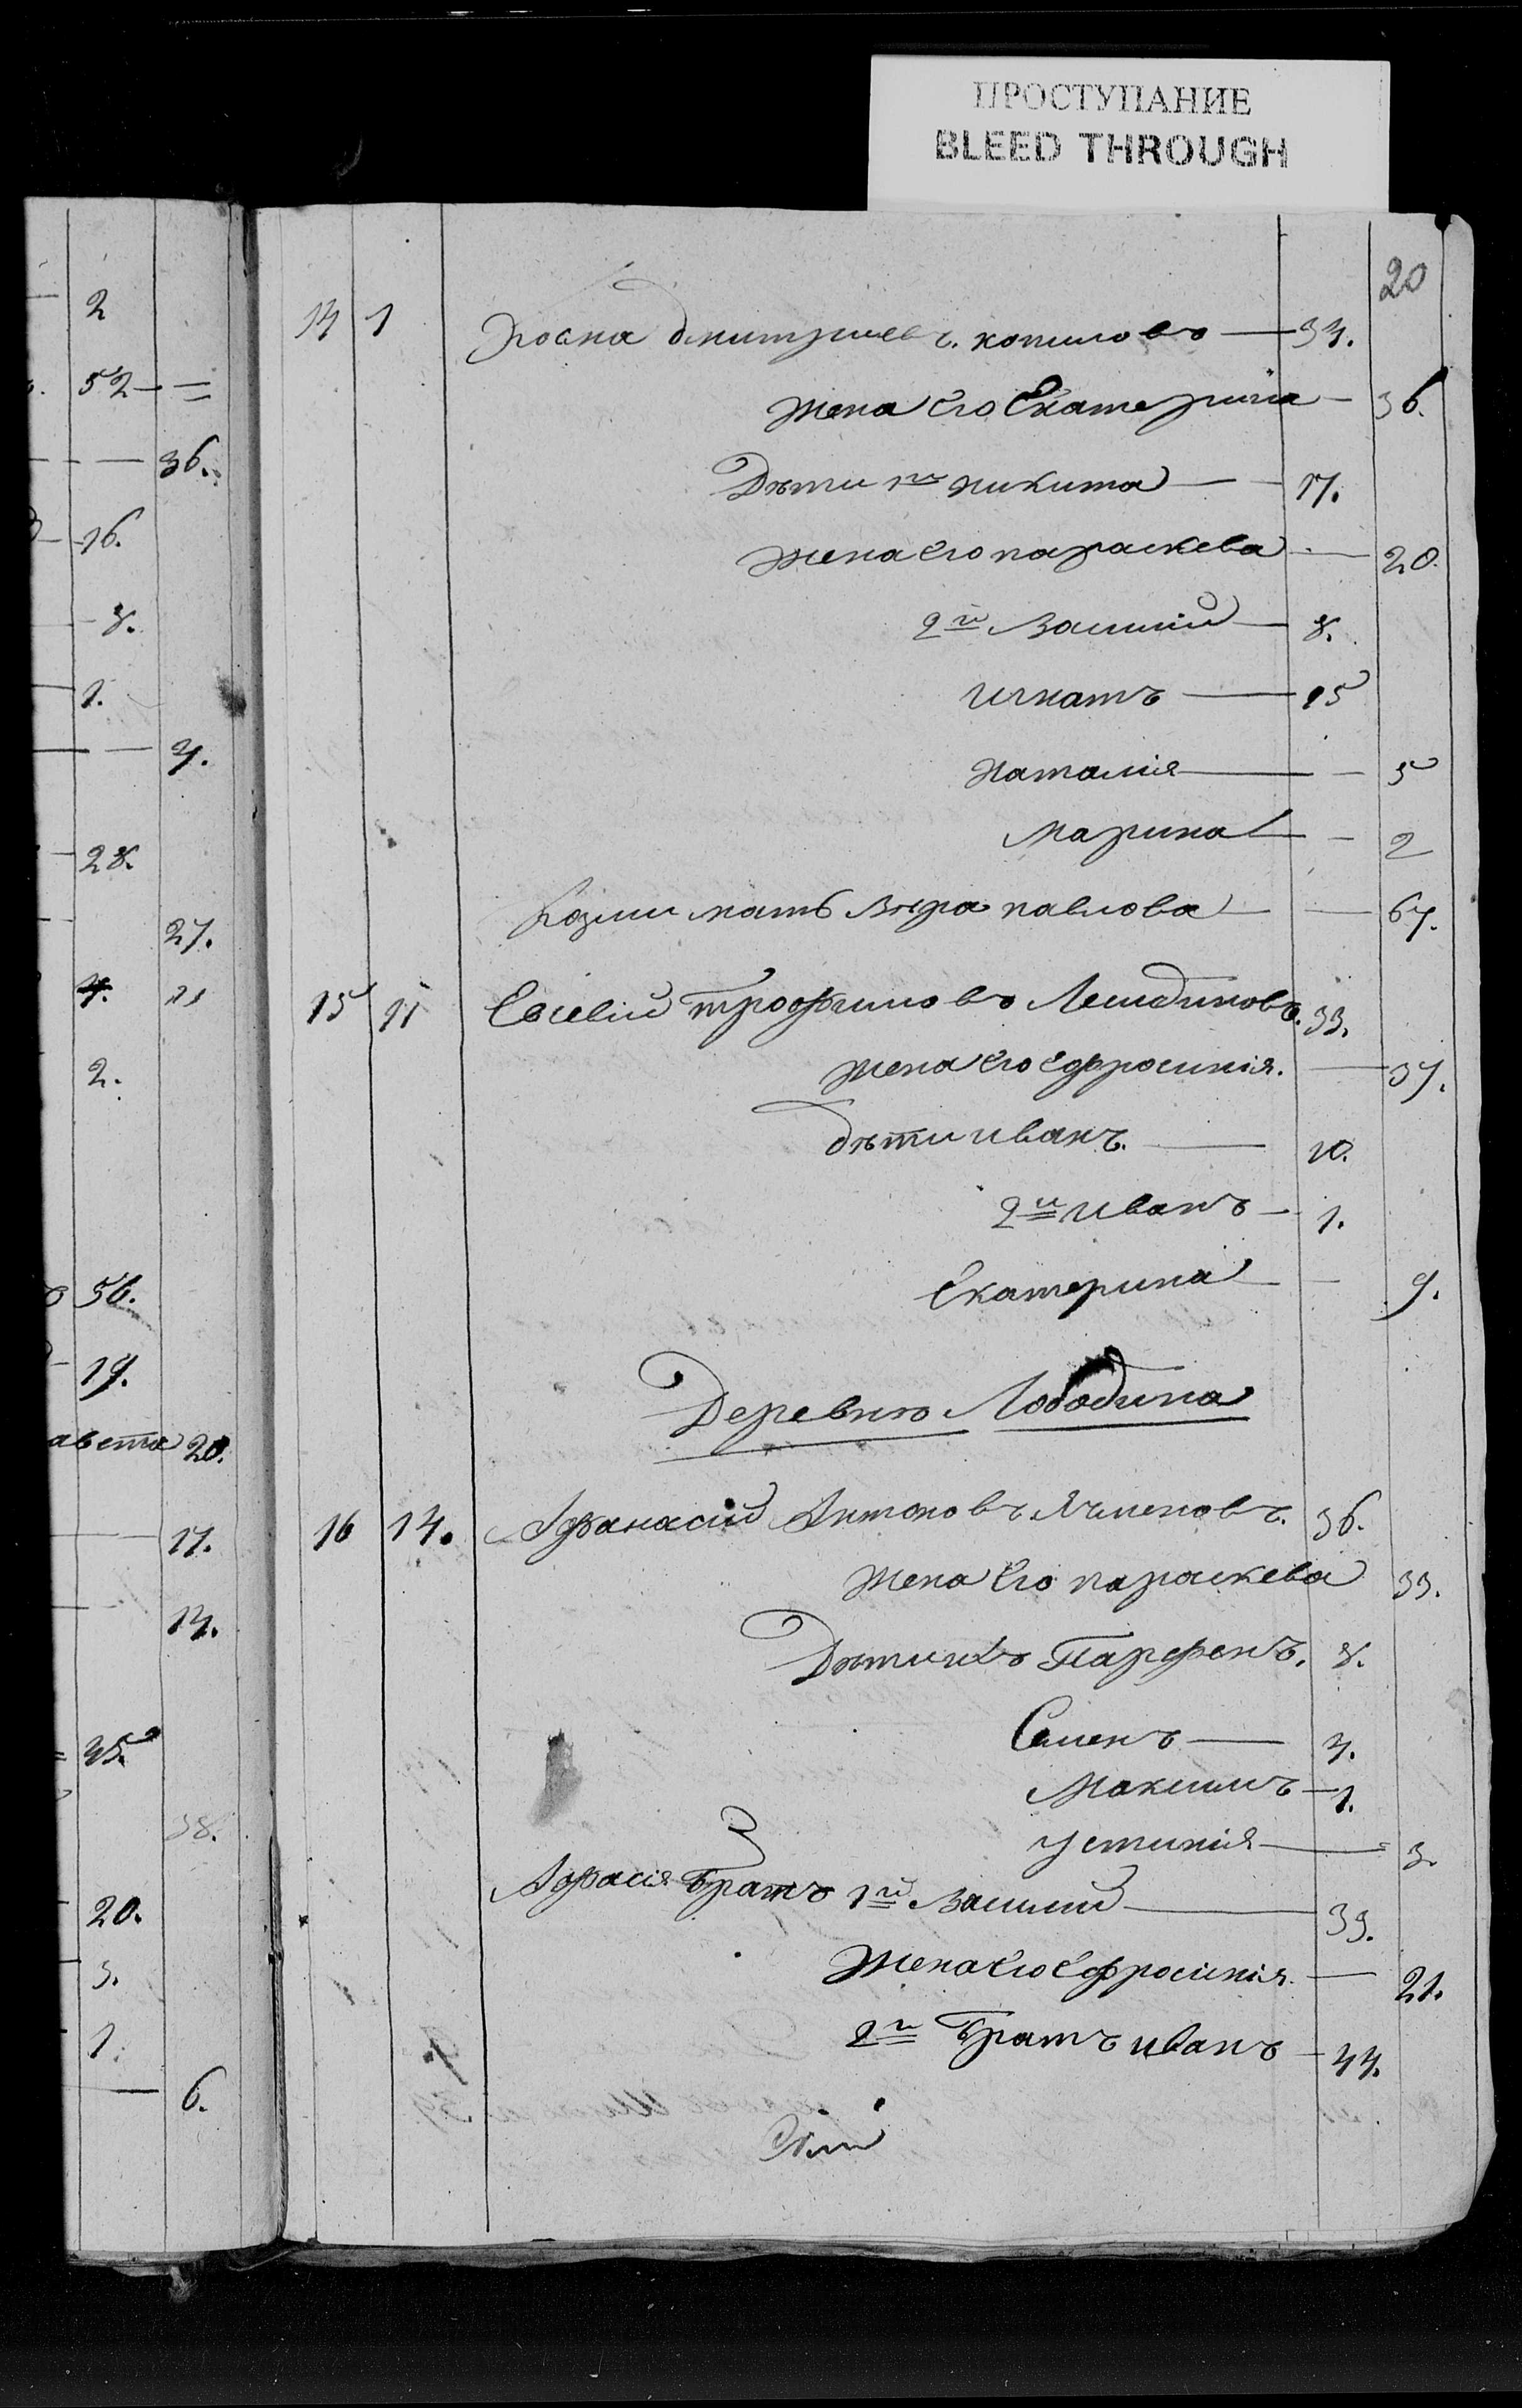 ПРОСТУПАНИЕ
BLEED THROUGH
20
14 1 Козма дмитриевъ. копиловъ — 34.
жена Его Екатерина — 36.
Дѣти 1й никита — 17.
жена Его параскева — 20.
2й Василий — 8.
игнатъ — 15
Наталия — 5
Марина — 2
Козми мать Вѣра павлова — 67.
15 11 Евсевий трофимовъ 33.
жена Его ефросиния. — 37.
дѣти иванъ. — 10.
2й иванъ — 1.
Екатерина — 9.
Деревню Лободина
16 14. Афанасий Антоновъ Ячменовъ. 36.
жена Его параскева 33.
Дѣти ихъ Парфенъ. 8.
Семенъ — 4.
Максимъ — 1.
Устиния — 3.
Афасия братъ 1й Василий — 39.
Жена Его ефросиния. — 21.
2й братъ иванъ — 44.
2
52 — =
36.
16.
8.
1.
4.
28.
27.
4. 11
2.
56.
19.
авета 20.
17.
14.
45.
38.
20.
3.
1.
6.